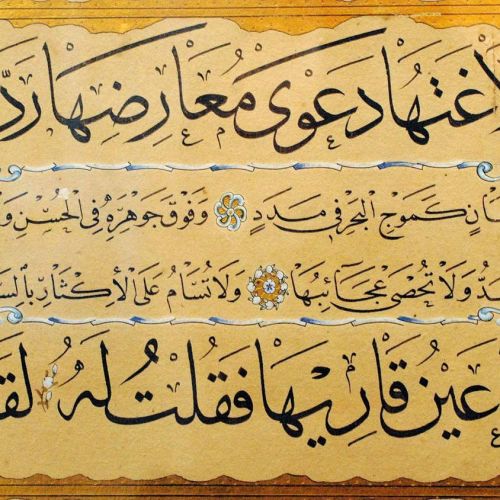 لاغتها دَعْوٰى مُعَارِضِهَا رَدَّ
انٍ كَمَوْجِ الْبَحْرِ فِى مَدَدٍ وَفَوْقَ جَوْهَرِهِ فِى الْحُسْنِ وَ
دُّ وَلَا تُحْصٰى عَجَائِبُهَا وَلَا تُسَامُ عَلَى الْاِكْثَارِ بِالسَّ
عَيْنُ قَارِيهَا فَقُلْتُ لَهُ لَقَ